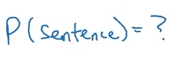 P(sentence) = ?